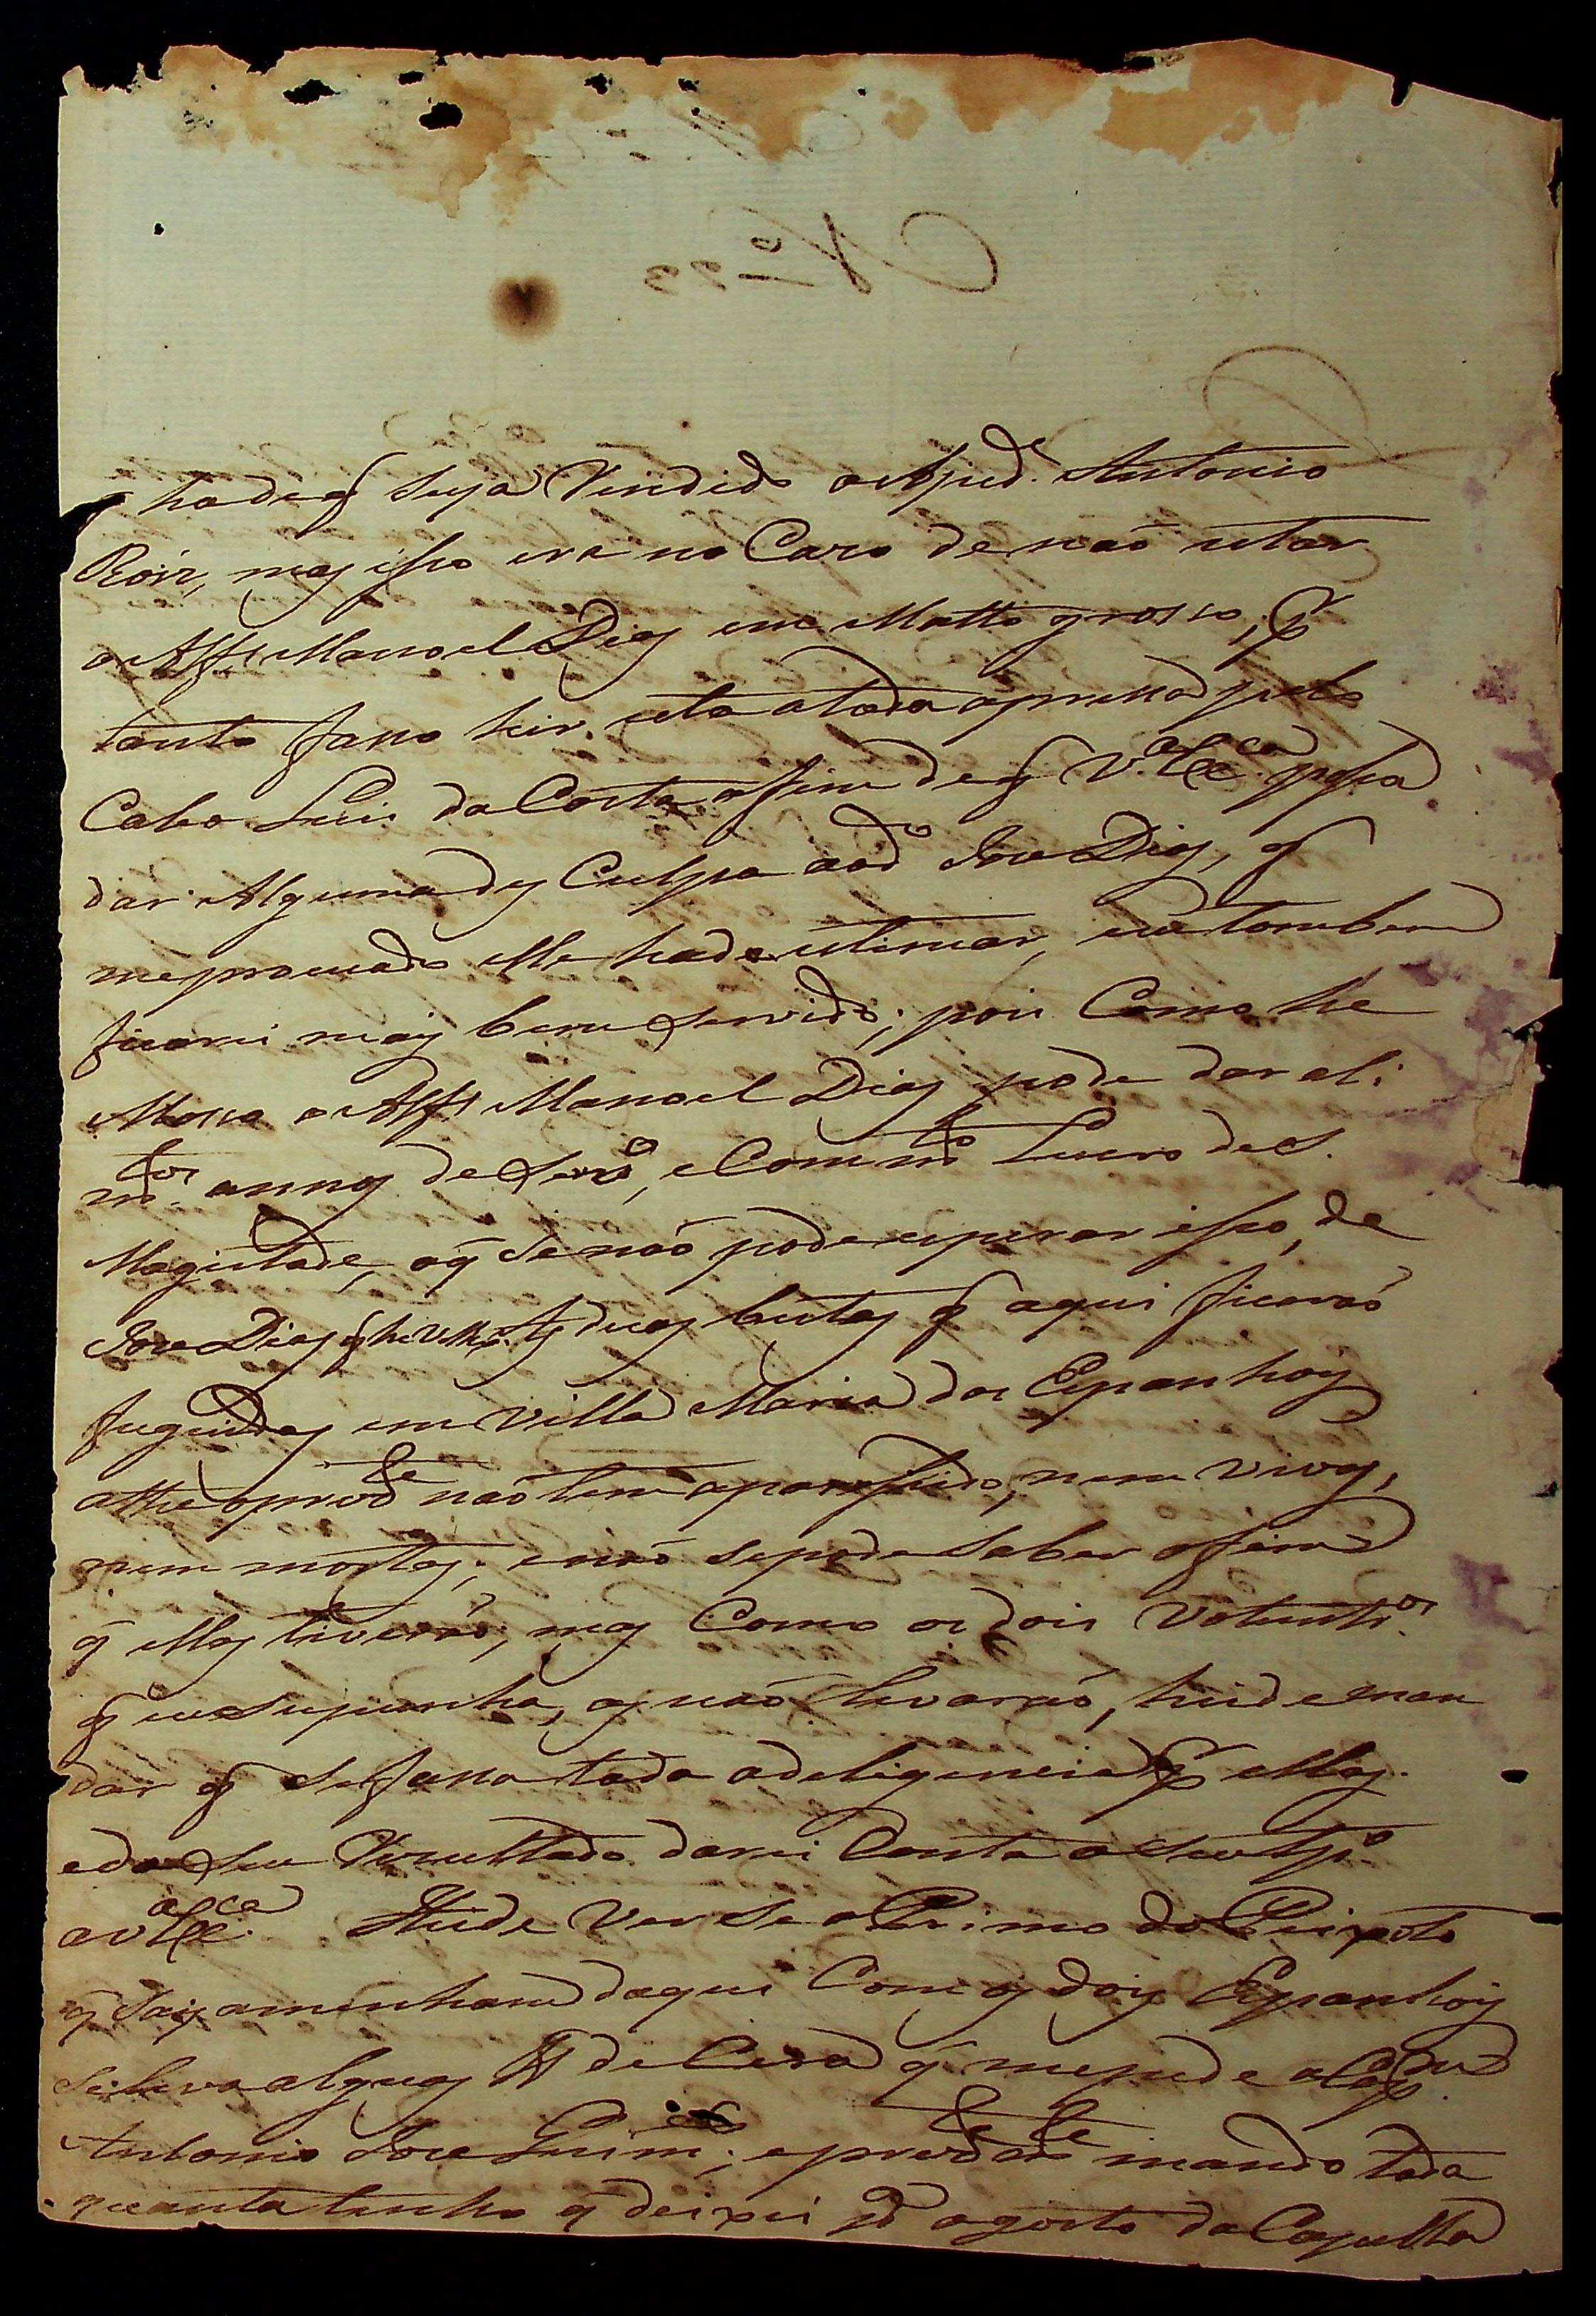 q hadeq seja Vendido o Ajud.e Antonio
Roiz, mas isso era no Cazo de naõ estar
o Alfs Manoel Dias em Matto grosso, e p.r
tanto faço hir esta atoda apressa pelo
Cabo Luis da Costa afim deq V. Ex.ca possa
dar Alguma des Culpa aod.o Joze Dias, q
meprocurado elle hade estimar, eu tambem
ficarei mais bem servido; pois Como he
Mosso o Alfs Manoel Dias pode dar ali
m.tos annos de Serv.o, e Com m.to Lucro de S.
Magestade, oq̃ senaõ pode esperar isso, de
Joze Dias q he Velho. As duas bestas q aqui ficaraõ
fugindas em Villa Maria dos Espanhois
athe oprez.te naõ tem aparessido, nem vivas,
nem mortas; enaõ sepode saber ofim
q̃ ellas tiveraõ, mas Como os dois Volunt.os
q eu supunha, as naõ levaraõ, heide man
dar q se faça toda adeligencia p.r ellas.
edo seu Rezultado darei Conta aseu tp.o
a V Ex.ca Heide ver se o Primo do Peixoto
q̃ Say amenham daqui Com os dois Espanhois
se leva alguas lb de Cera q̃ mepede o Cap.m
Antonio Joze Guim.es; eprez.te m.te mando toda
quanta tenho q̃ deixei p.a o gosto da Capella